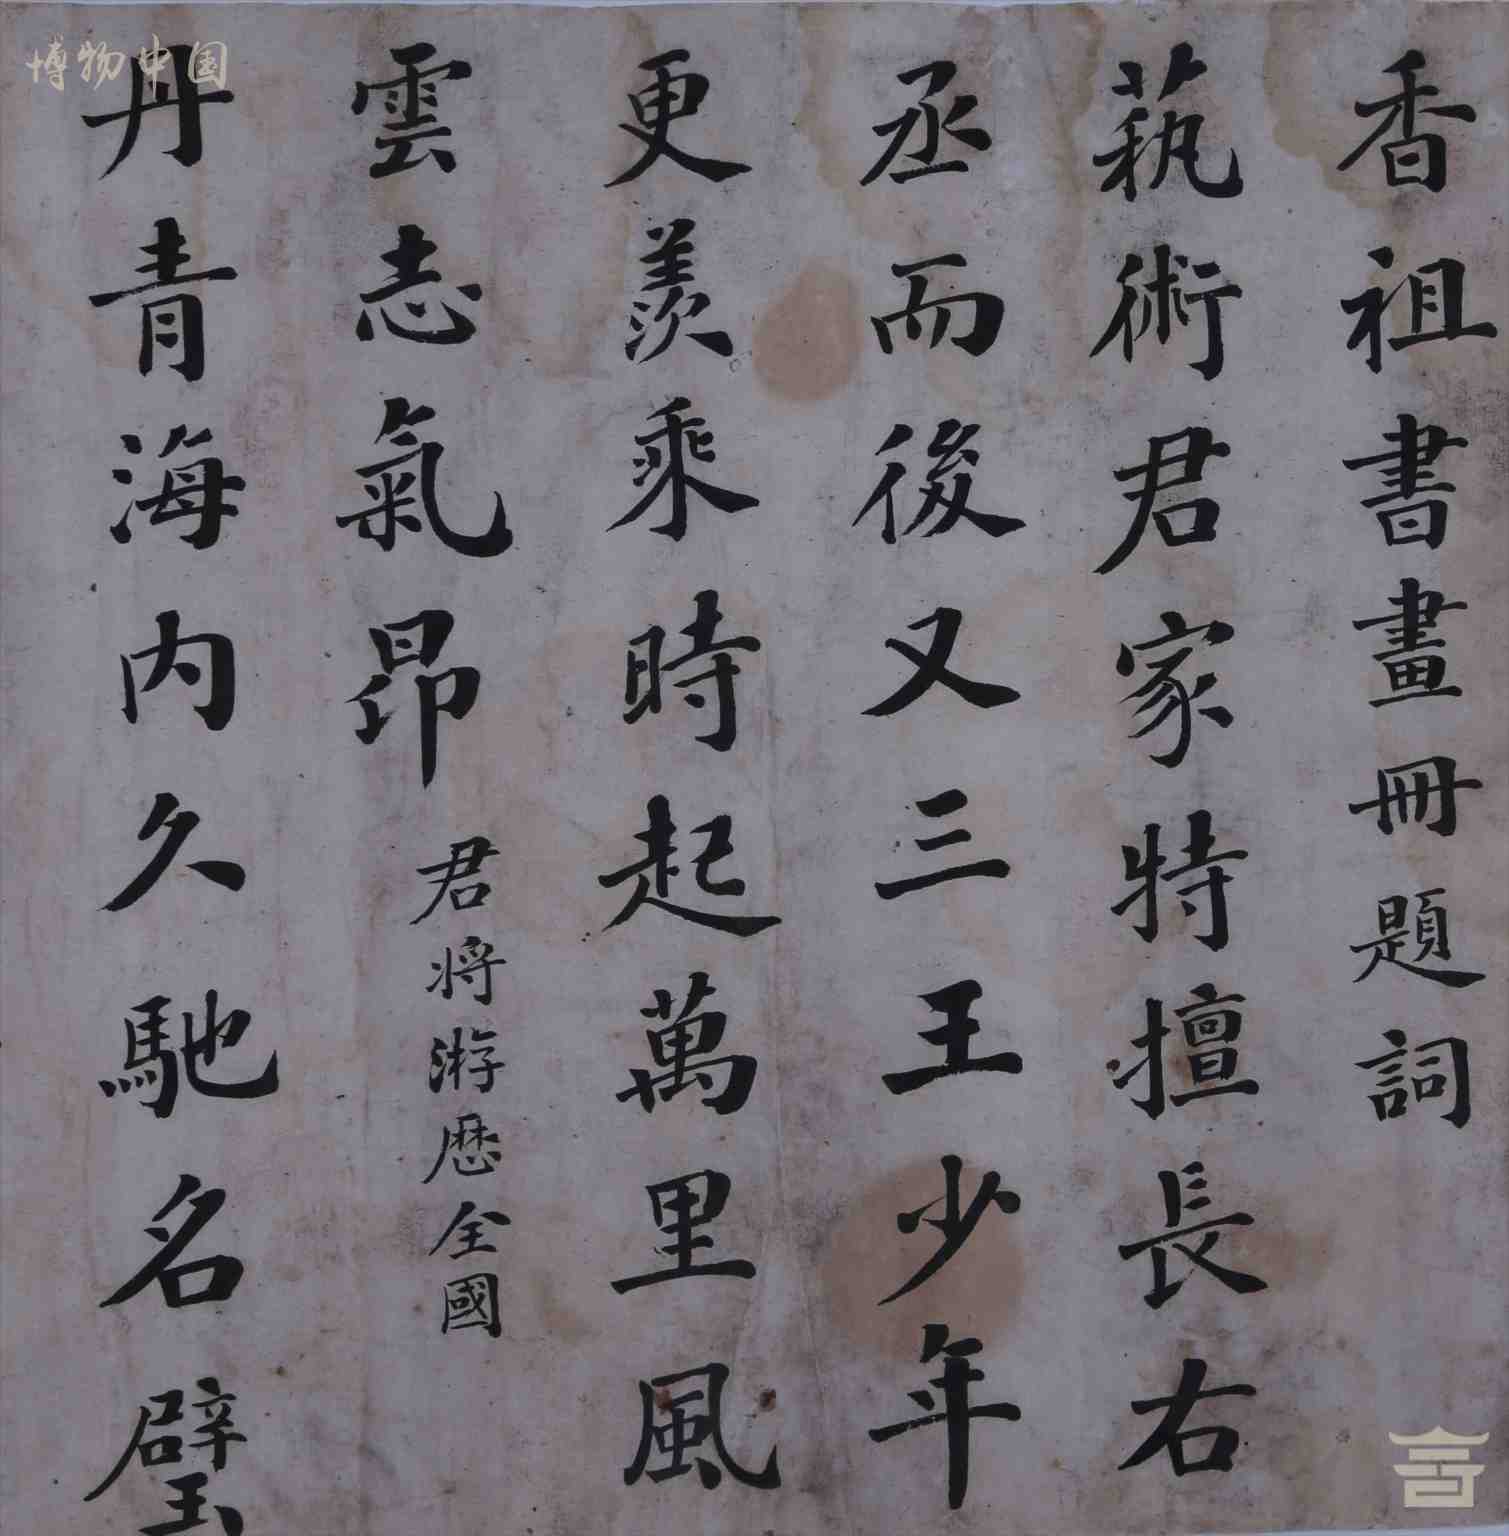 香祖書畫冊題詞
藝術君家特擅長右
丞而後又三王少年
更羨乘時起萬里風
雲志氣昂
君將游歷全國
丹青海内久馳名璧
博物中国